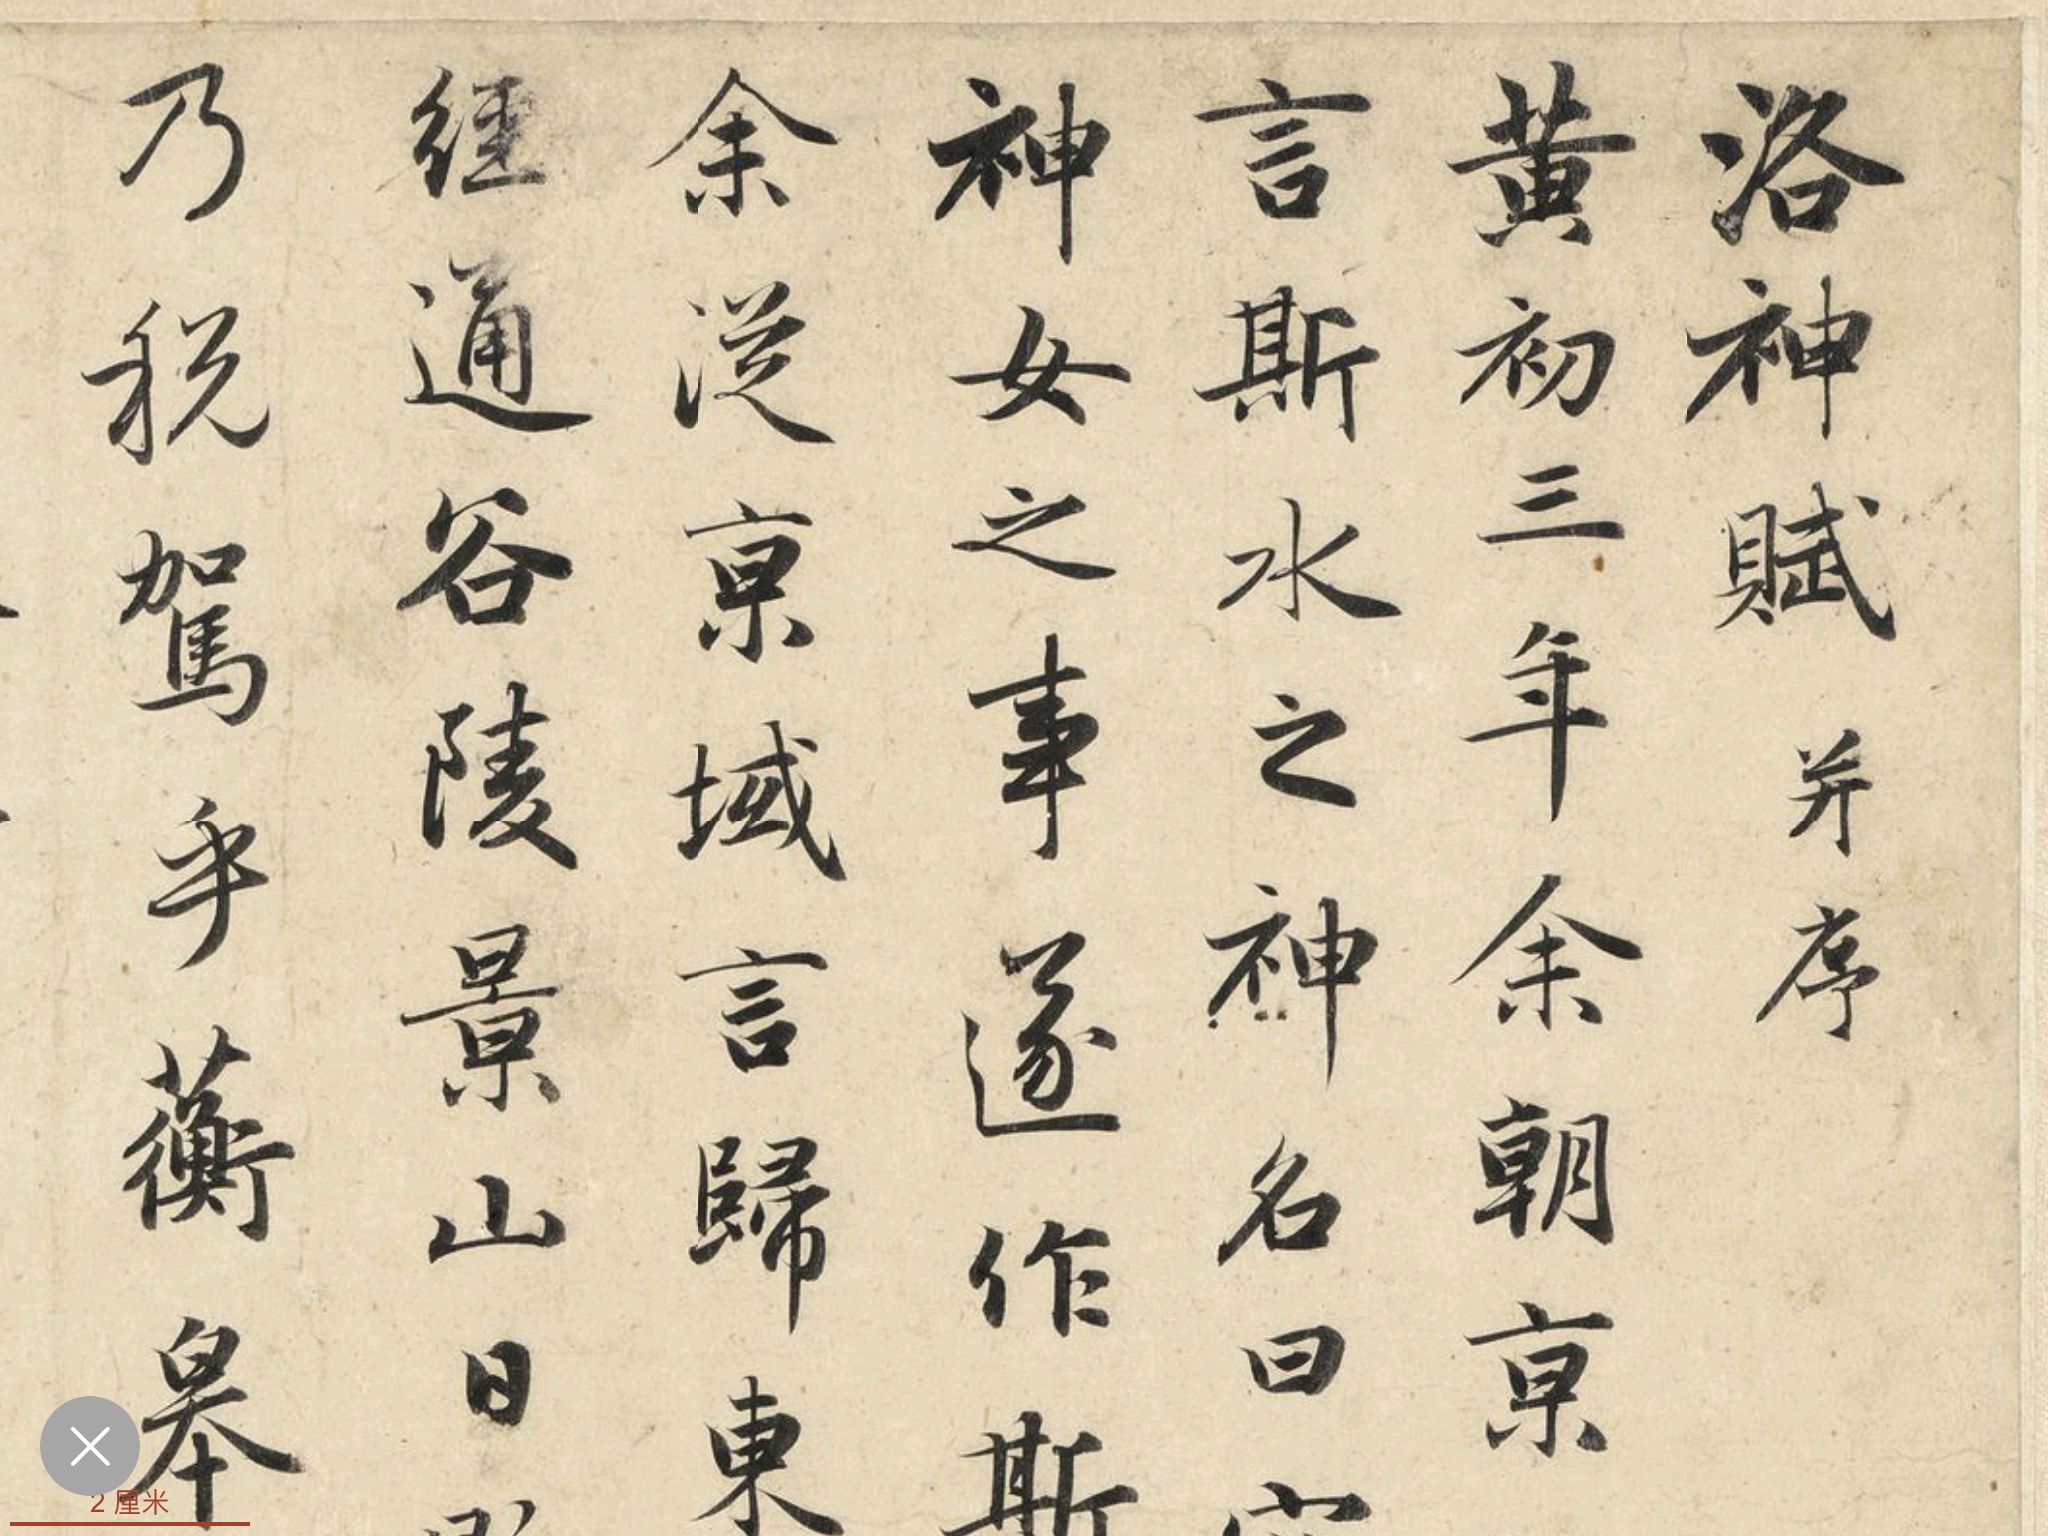 洛神賦并序
黃初三年余朝京
言斯水之神名曰
神女之事遂作斯
余從京域言歸東
經通谷陵景山日
乃稅駕乎蘅皋
2 厘米